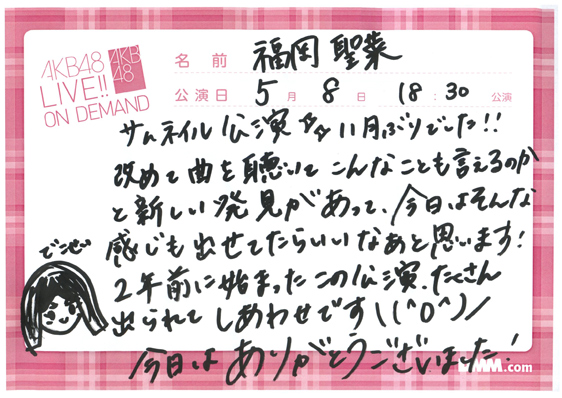 AKB48
LIVE!!
ON DEMAND
AKB
48
名前 福岡 聖菜
公演日 5月 8日 18:30 公演
サムネイル公演 11月ぶりでした!!
改めて曲を聴いて こんなことも言えるのか
と新しい発見があって、今日はそんな
感じも出せてたらいいなあと思います!
2年前に始まったこの公演、たくさん
出られて しあわせです\(^o^)/
今日は ありがとうございました!
DMM.com